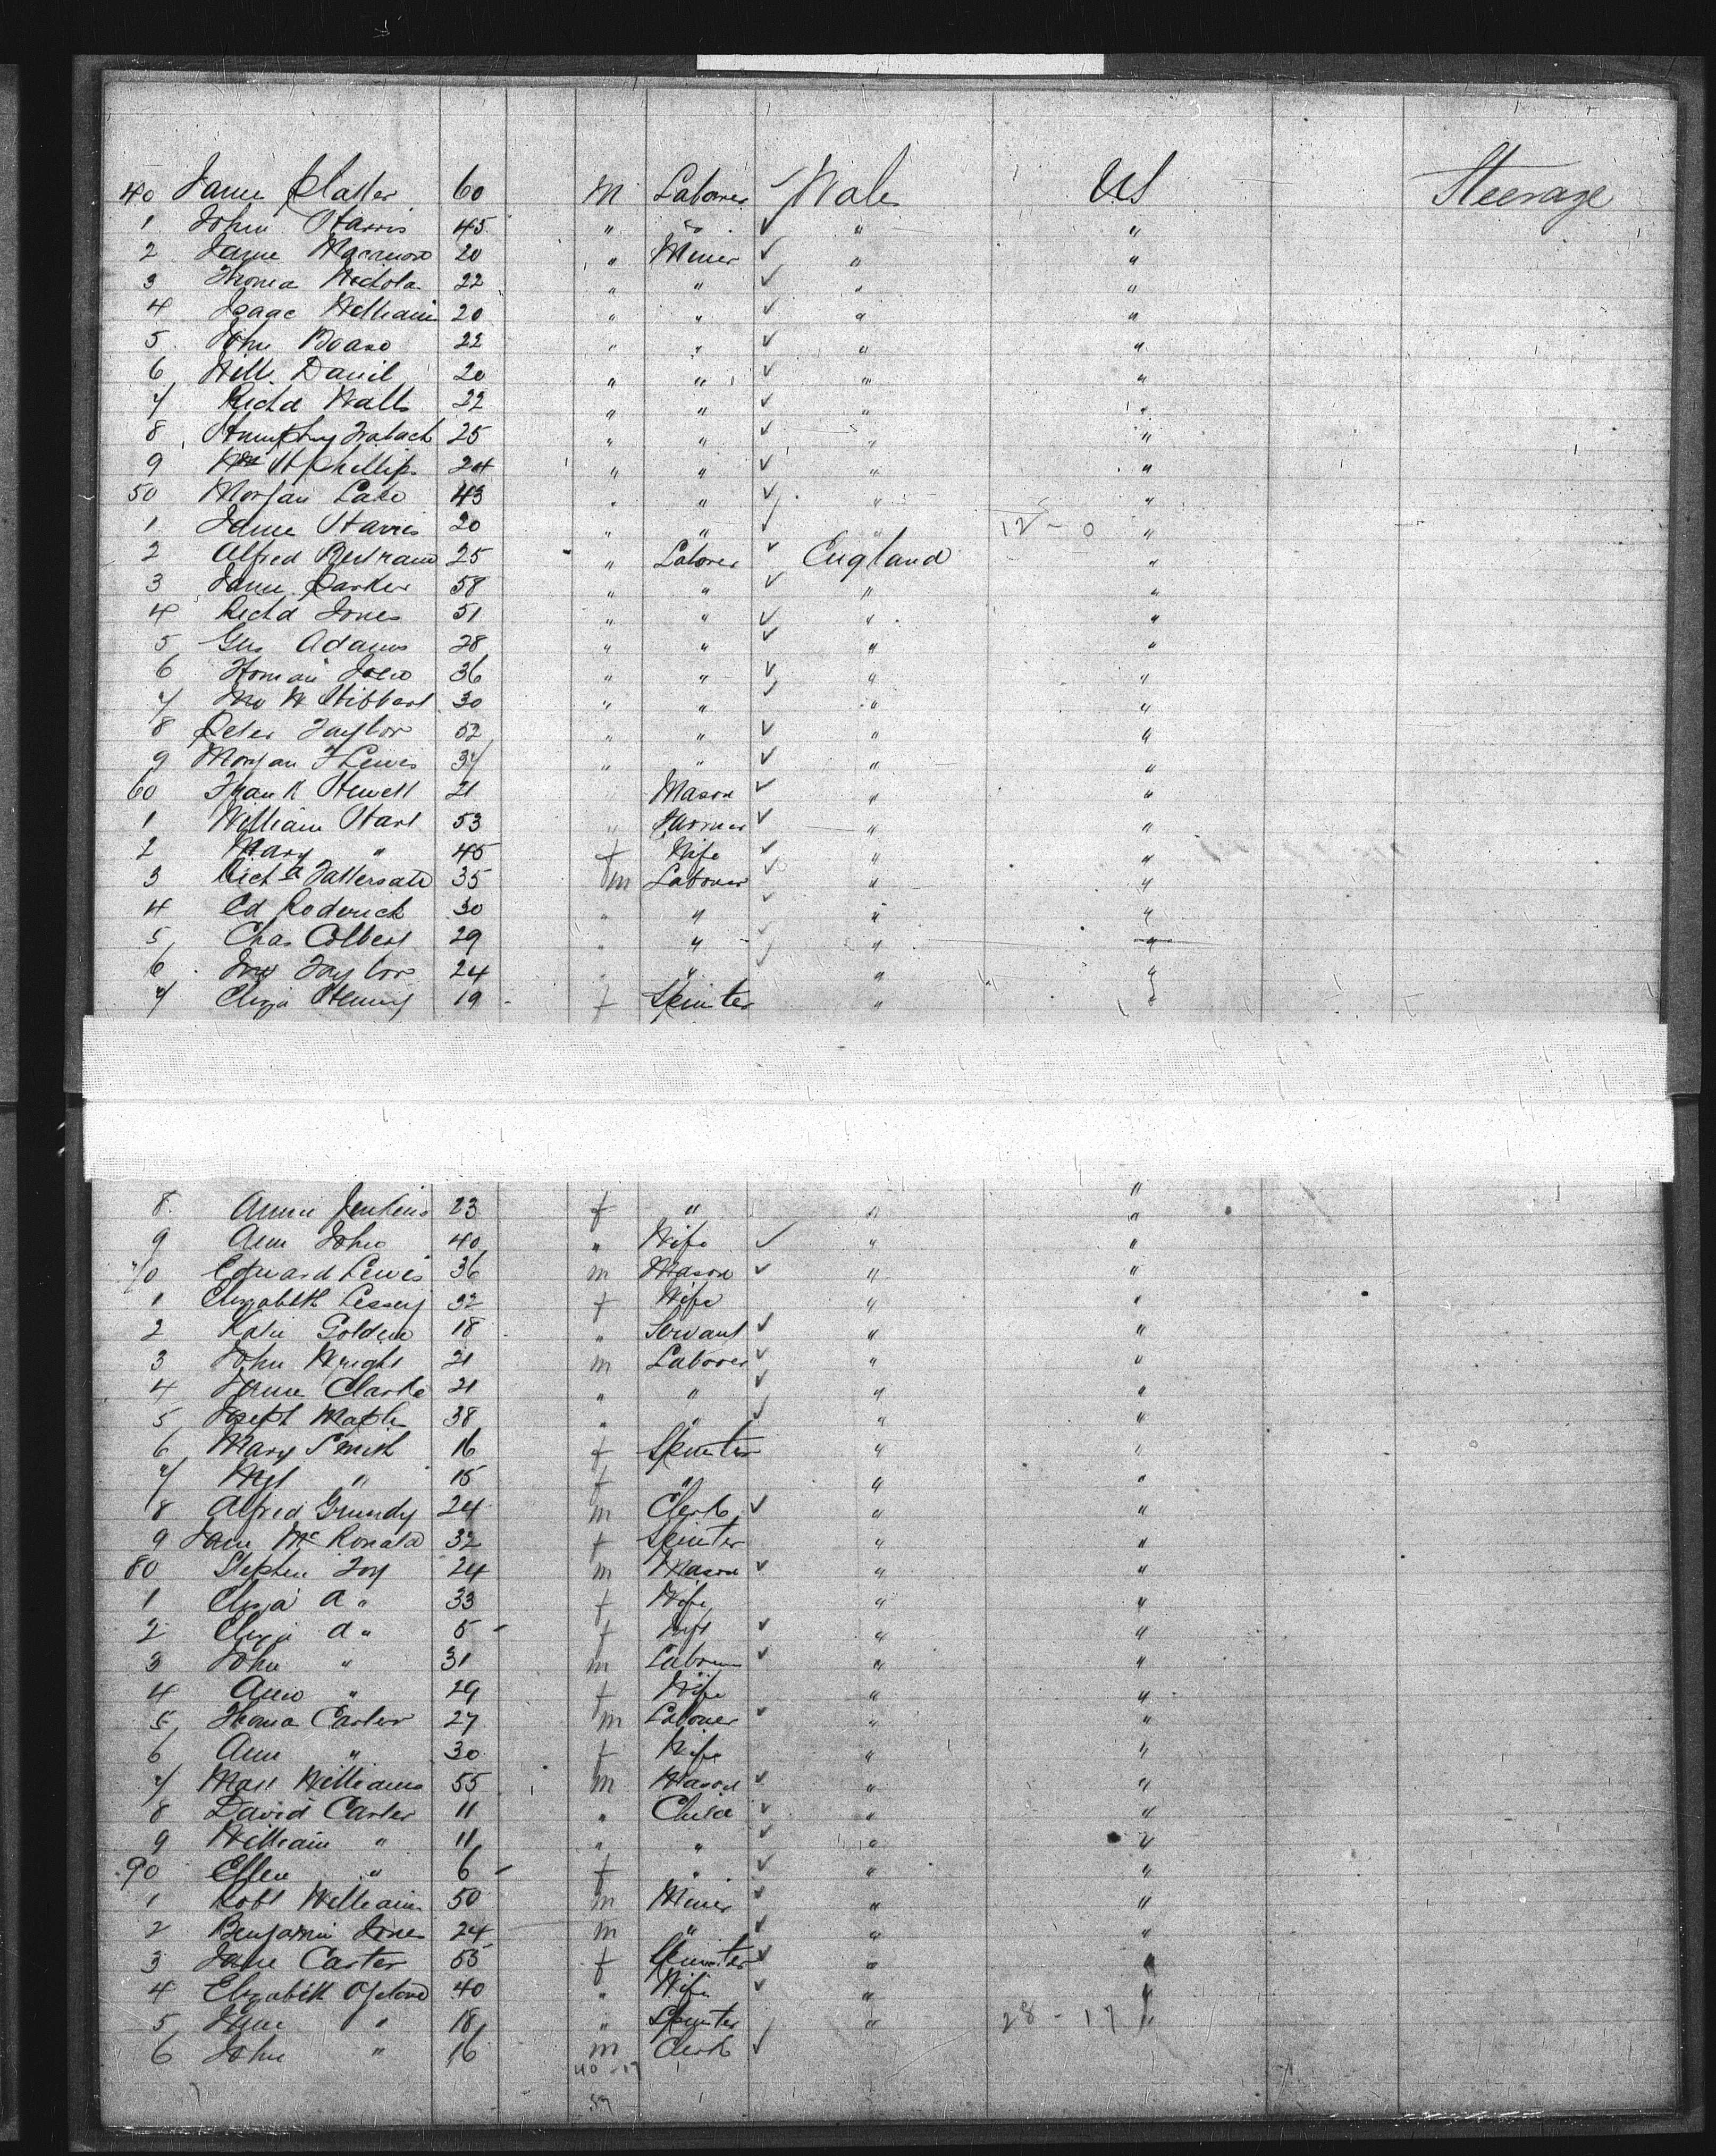 40 James Slatter 60 m Laborer Wales US Steerage
1 John Harris 45 " do " "
2 James 20 " Miner " "
3 Thomas Nichola 22 " " " "
4 Isaac William 20 " " " "
5 John 22 " " " "
6 Will. Daniel 20 " " " "
7 Richd Walls 22 " " " "
8 Humphrey 25 " " " "
9 Wm H Phillips 24 " " " "
50 Morgan 43 " " " "
1 James Harris 20 " " " 12 - 0 "
2 Alfred Bertram 25 " Laborer England "
3 James Parker 58 " " " "
4 Richd Jones 51 " " " "
5 Geo Adams 28 " " " "
6 36 " " " "
7 Jno W Hibbert 30 " " " "
8 Peter Taylor 52 " " " "
9 Morgan Lewis 37 " " " "
60 Frank Hewett 21 " Mason " "
1 William Hart 53 " Farmer " "
2 Mary " 45 f Wife " "
3 Richd Tattersall 35 m Laborer " "
4 Ed Roderick 30 " " " "
5 Chas Colbert 29 " " " "
6 Jno Taylor 24 " " " "
7 Eliza 19 f Spinster " "
"
8 Annie Jenkins 23 f " " "
9 Ann John 40 " Wife " "
70 Edward Lewis 36 m Mason " "
1 Elizabeth 32 f Wife " "
2 Katie Golden 18 " Servant " "
3 John Wright 21 m Laborer " "
4 James Clarke 21 " " " "
5 Joseph 38 " " " "
6 Mary Smith 16 f Spinster " "
7 Mgt " 15 f " " "
8 Alfred Grundy 24 m Clerk " "
9 Jane Mc Ronald 32 f Spinster " "
80 Stephen Foy 24 m Mason " "
1 Eliza A " 33 f Wife " "
2 Eliza A " 5 f " "
3 John " 31 m Laborer " "
4 Ann " 29 f Wife " "
5 Thomas Carter 27 m Laborer " "
6 Ann " 30 f Wife " "
7 Williams 55 m Mason " "
8 David Carter 11 " Child " "
9 William " 11 " " " "
90 Ellen " 6 f " " "
1 Robt William 50 m Miner " "
2 Benjamin Jones 24 m " " "
3 Jane Carter 55 f Spinster " "
4 Elizabeth 40 " Wife " "
5 Jane " 18 " Spinster " 28 - 17 "
6 John " 16 m Clerk
40 - 17
57